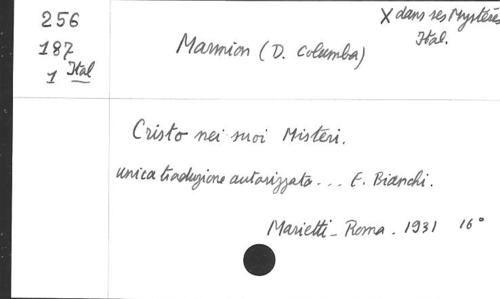 256
187
1 Ital
X dans ses Mystères
Ital.
Marmion (D. Columba)
Cristo nei suoi Misteri.
unica traduzione autorizzata... E. Bianchi.
Marietti - Roma. 1931 16°